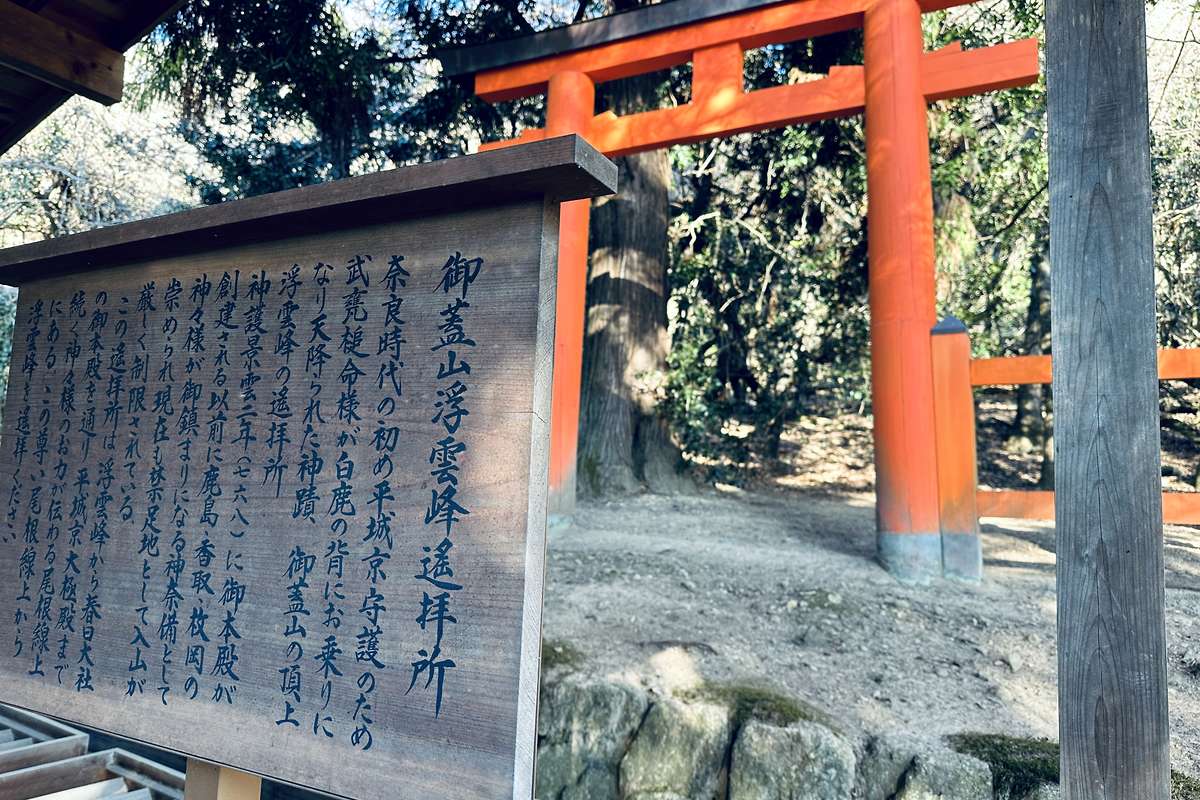 御蓋山浮雲峰遙拝所
奈良時代の初め平城京守護のため
武甕槌命様が白鹿の背にお乗りに
なり天降られた神蹟、御蓋山の頂上
浮雲峰の遙拝所
神護景雲二年(七六八)に御本殿が
創建される以前に鹿島、香取、枚岡の
神々様が御鎮まりになる神奈備として
崇められ現在も禁足地として入山が
厳しく制限されている。
この遙拝所は浮雲峰から春日大社
の御本殿を通り平城京大極殿まで
続く神々様のお力が伝わる尾根線上
にある。この尊い尾根線上から
浮雲峰を遙拝ください。